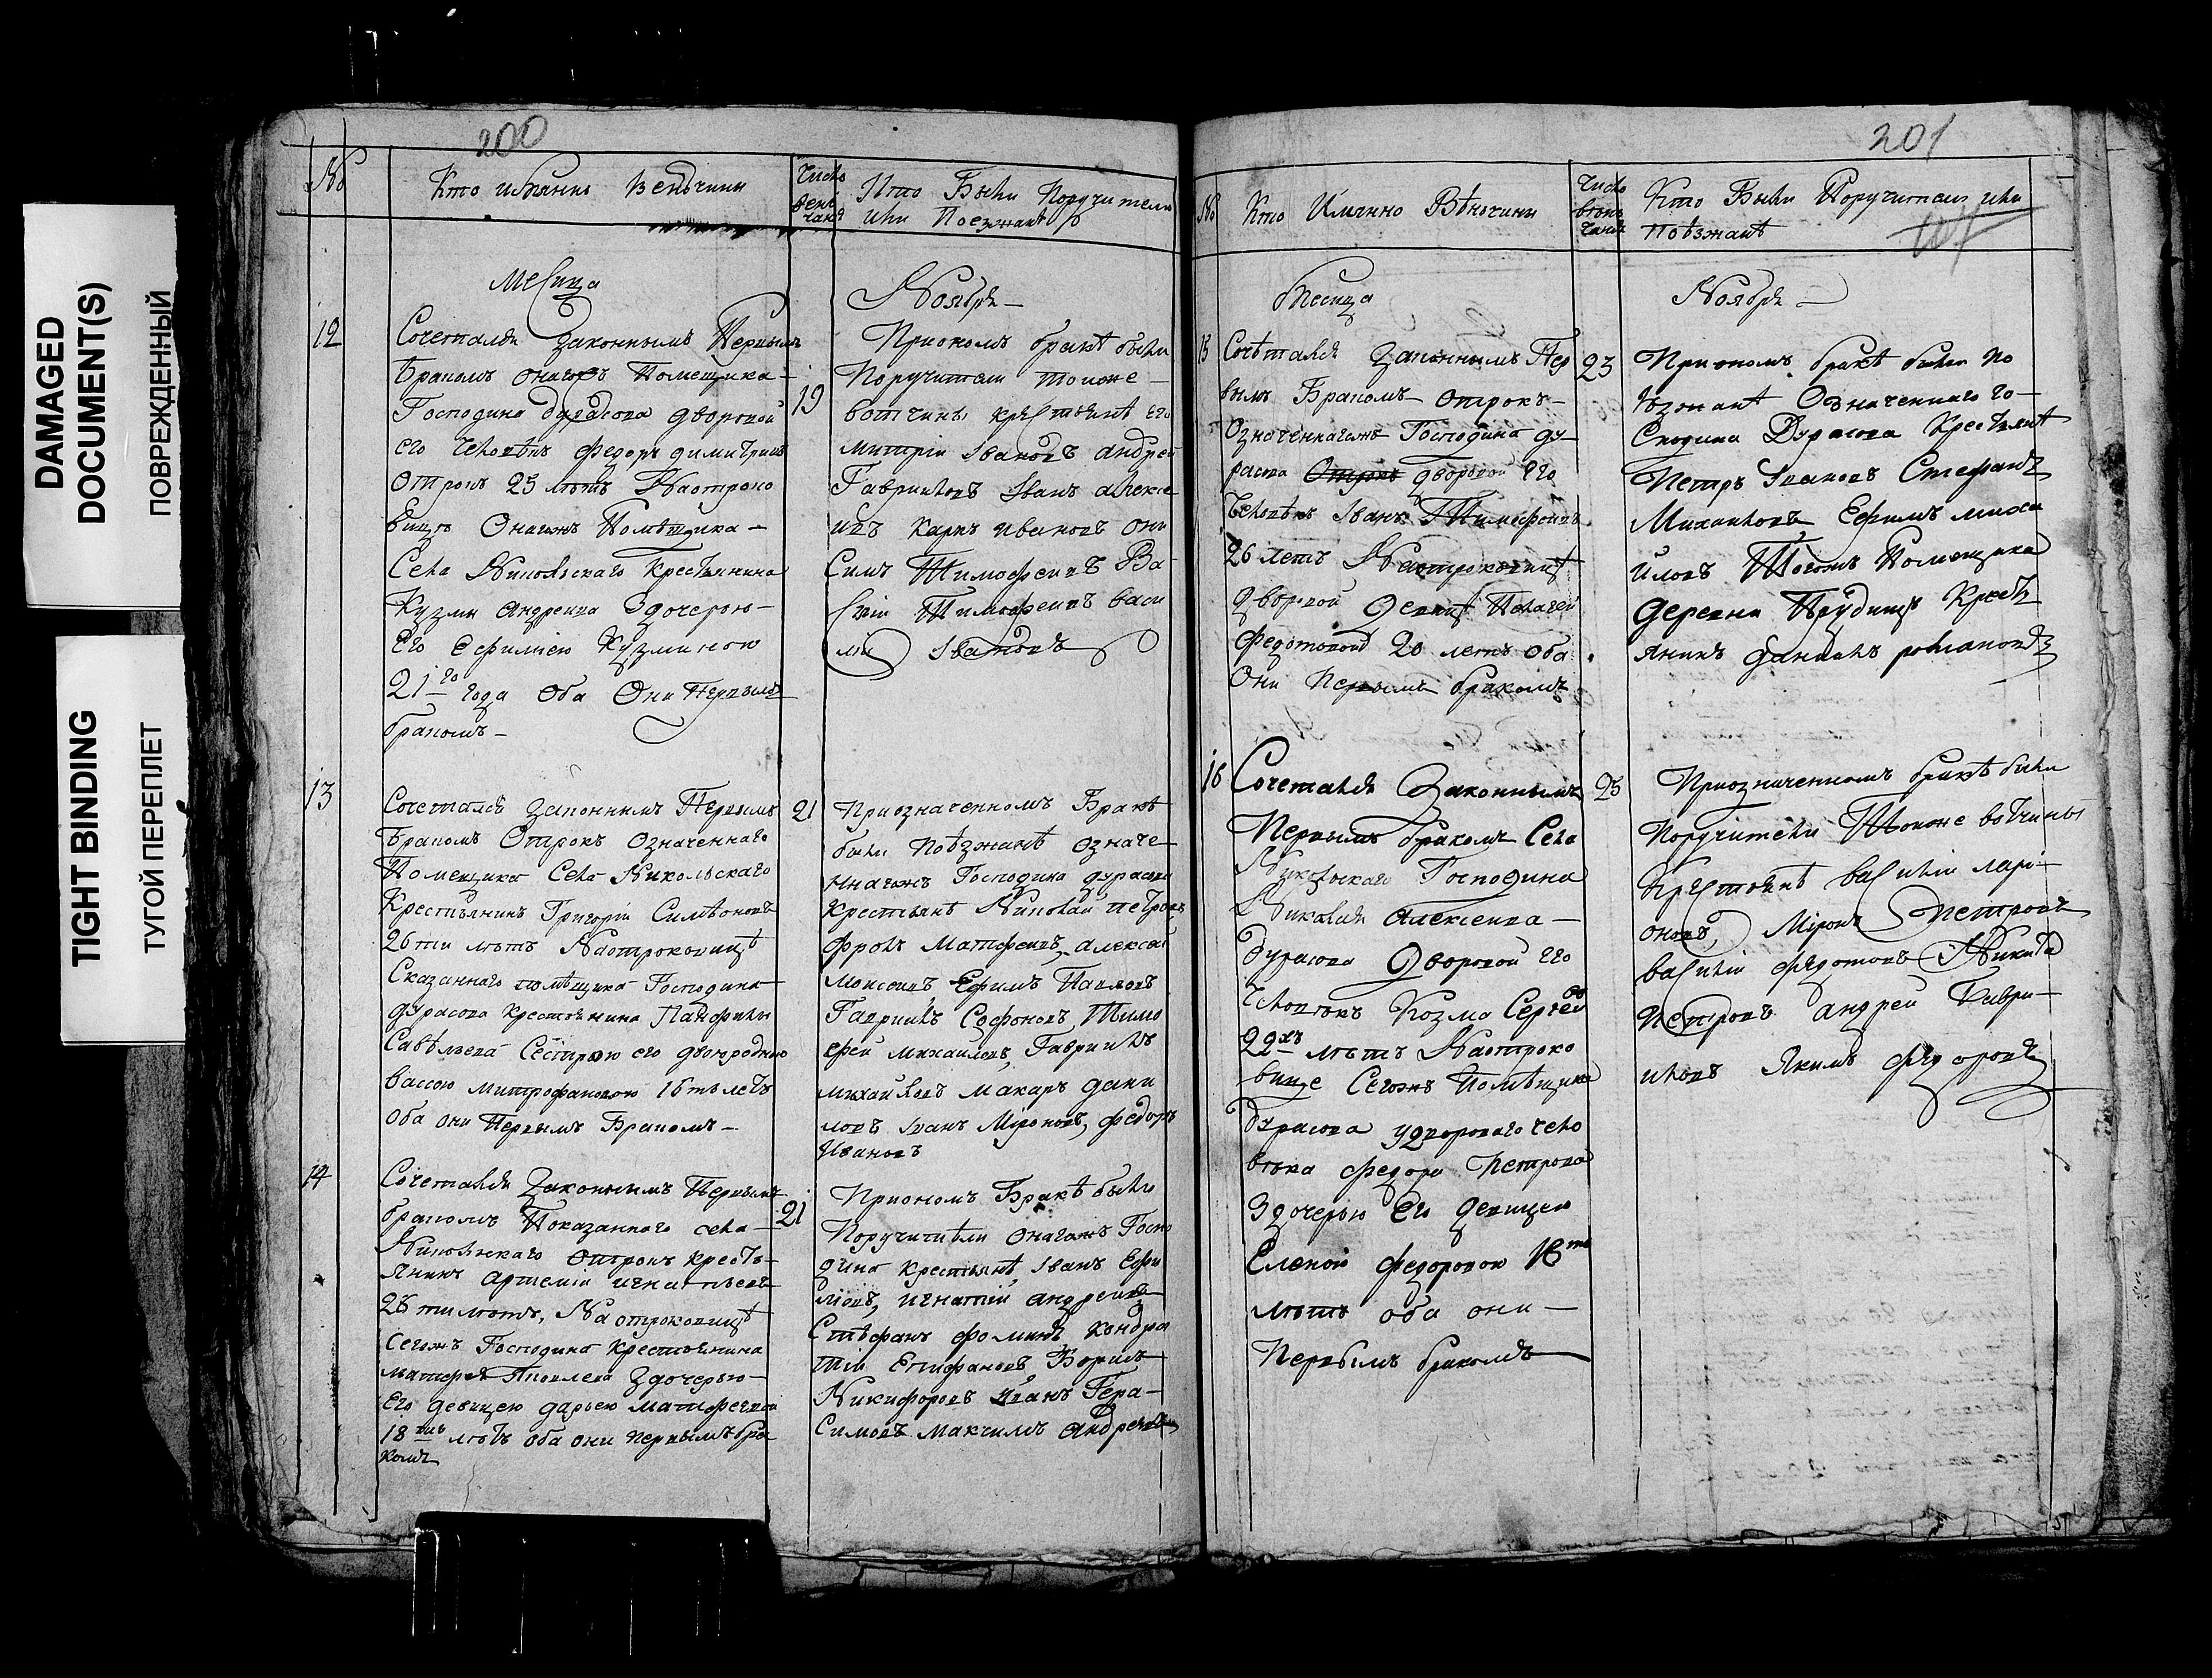 DAMAGED
DOCUMENT(S)
ПОВРЕЖДЕННЫЙ
TIGHT BINDING
ТУГОЙ ПЕРЕПЛЕТ
200
№
Кто имянны венчины
число
вен
чания
Кто Были Поручители
или Поезжанѣ
Месяца
Ноября
12
Сочетался законнымъ Первымъ
бракомъ онагожъ Помещика
Господина дурасова дворовой
его человѣкъ Федоръ димитриевъ
отрокъ 25 лѣтъ Наотроко
вицѣ Онагожъ Помѣщика
Села Никольскаго Крестьянина
Кузмы андреива Здочерью
Его Ефимиею Кузминою
21го года Оба Они Первымъ
бракомъ
19
Приономъ бракѣ были
Поручители тоиже
вотчины крестьянѣ его
митрiи Iвановъ андрей
Гавриловъ Iванъ алексе
ивъ Карпъ ивановъ они
симъ Тимофеивъ Ва
силiи Тимофеивъ васи
лiи Iвановъ
13
Сочетался законнымъ Первымъ
бракомъ Отрокъ Означеннаго
Помещика Села Никольскаго
Крестьянинъ Григорiи Симѣоновъ
26ти лѣтъ Наотроковицѣ
Сказаннаго помѣщика Господина
дурасова крестьянина Панфилы
Савѣльева Сестрою его двоюродною
Вассою Митрофановою 16ть летъ
оба они Первымъ Бракомъ
21
Приозначенномъ Бракѣ
были Поѣзжанѣ означе
ннагожъ Господина дурасова
Крестьянѣ Николай петровъ
Фролъ Матфеивъ, алексей
моисеивъ Ефимъ Павловъ
Гаврiилъ Софоновъ Тимо
фей михаиловъ, Гаврiилъ
михаиловъ макаръ дани
ловъ Iванъ Мiроновъ, федоръ
Ивановъ
14
Сочетался Законнымъ Первымъ
бракомъ Показаннаго села
Никольскаго отрокъ кресть
янинъ артемiи игнатьевъ
26ти лѣтъ, Наотроковицѣ
сегожъ Господина Крестьянина
матфея Яковлева Здочерью
Его девицею дарьею матфеевой
18 лѣтъ оба они первымъ бра
комъ
21
Приономъ Бракѣ были
Поручители онагожъ Госпо
дина крестьянѣ, Iванъ Ефи
мовъ, игнатiй андреивъ
Стѣфанъ фоминъ Кондра
тiи Епифановъ, Борисъ
Никифоровъ Iванъ Гера
симовъ Макчимъ андреивъ
201
№
Кто Имянно Вѣнчины
число
вѣнъ
чания
Кто Были Поручители или
Поѣзжанѣ
Месяца
Ноября
15
Сочѣтался Законнымъ Пер
вымъ Бракомъ отрокъ
Означеннагожъ Господина ду
расова Отрокъ дворовой Его
человѣкъ Iванъ Тимофеивъ
26 летъ Наотроковицѣ
дворовой девицѣ Пелагеи
Федотовой 20 летъ оба
Они Первымъ бракомъ
23
Приономъ бракѣ были по
ѣзжанѣ Означеннаго го
сподина Дурасова Крестьянѣ
Петръ Iвановъ Стефанъ
Михаиловъ Ефимъ миха
иловъ Тогожъ Помещика
деревни Прудищъ Крестъ
янинъ данилъ романовъ
16
Сочетался Законнымъ
Первымъ бракомъ Села
Никольскаго Господина
Николая Алексеива
Дурасова Дворовой Его
человѣкъ Козма Сергеевъ
22хъ лѣтъ Наотроко
вице Сегожъ Помѣщика
Дурасова удвороваго чело
вѣка федора петрова
Здочерью Его девицею
Еленой федоровой 18ть
лѣтъ оба они
Первымъ бракомъ
25
Приозначенномъ бракѣ были
Поручители Тоиже вотчины
Крестьянѣ василiи ларi
оновъ, Мiронъ Петровъ
василiи федотовъ Никита
Петровъ андрей Гаври
иловъ Якимъ федоровъ